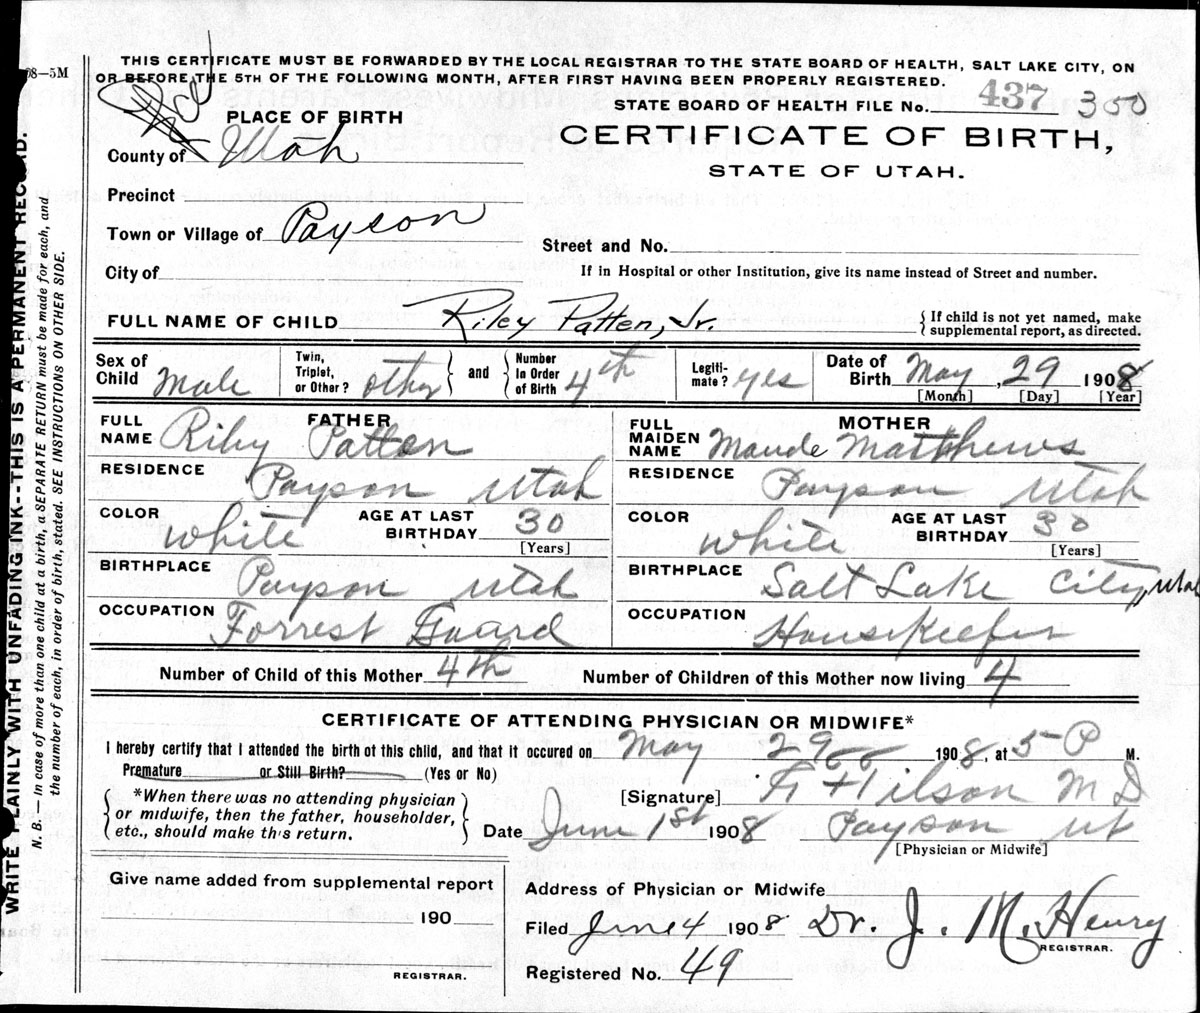 08—5M
THIS CERTIFICATE MUST BE FORWARDED BY THE LOCAL REGISTRAR TO THE STATE BOARD OF HEALTH, SALT LAKE CITY, ON
OR BEFORE THE 5TH OF THE FOLLOWING MONTH, AFTER FIRST HAVING BEEN PROPERLY REGISTERED.
STATE BOARD OF HEALTH FILE No. 437 350
PLACE OF BIRTH
CERTIFICATE OF BIRTH,
STATE OF UTAH.
County of Utah
Precinct
Town or Village of Payson
Street and No.
City of
If in Hospital or other Institution, give its name instead of Street and number.
FULL NAME OF CHILD Riley Patten, Jr.
{ If child is not yet named, make
supplemental report, as directed.
Sex of Child Male
Twin, Triplet, or Other? other } and { Number In Order of Birth 4th
Legiti-mate? yes
Date of Birth May, 29 1908
[Month] [Day] [Year]
FATHER
FULL NAME Riley Patten
RESIDENCE Payson Utah
COLOR White
AGE AT LAST BIRTHDAY 30
[Years]
BIRTHPLACE Payson Utah
OCCUPATION Forrest Guard
MOTHER
FULL MAIDEN NAME Maude Matthews
RESIDENCE Payson Utah
COLOR White
AGE AT LAST BIRTHDAY 30
[Years]
BIRTHPLACE Salt Lake City, Utah
OCCUPATION Housekeeper
Number of Child of this Mother 4th
Number of Children of this Mother now living 4
CERTIFICATE OF ATTENDING PHYSICIAN OR MIDWIFE*
I hereby certify that I attended the birth of this child, and that it occured on May 29 1908, at 5 P M.
Premature or Still Birth? (Yes or No)
{ *When there was no attending physician
or midwife, then the father, householder,
etc., should make this return. }
[Signature] M D
Date June 1st 1908 Payson Ut
[Physician or Midwife]
Give name added from supplemental report
190
REGISTRAR.
Address of Physician or Midwife
Filed June 4 1908 Dr. J. M. Henry
REGISTRAR.
Registered No. 49
WRITE PLAINLY WITH UNFADING INK--THIS IS A PERMANENT RECORD.
N. B.— In case of more than one child at a birth, a SEPARATE RETURN must be made for each, and
the number of each, in order of birth, stated. SEE INSTRUCTIONS ON OTHER SIDE.